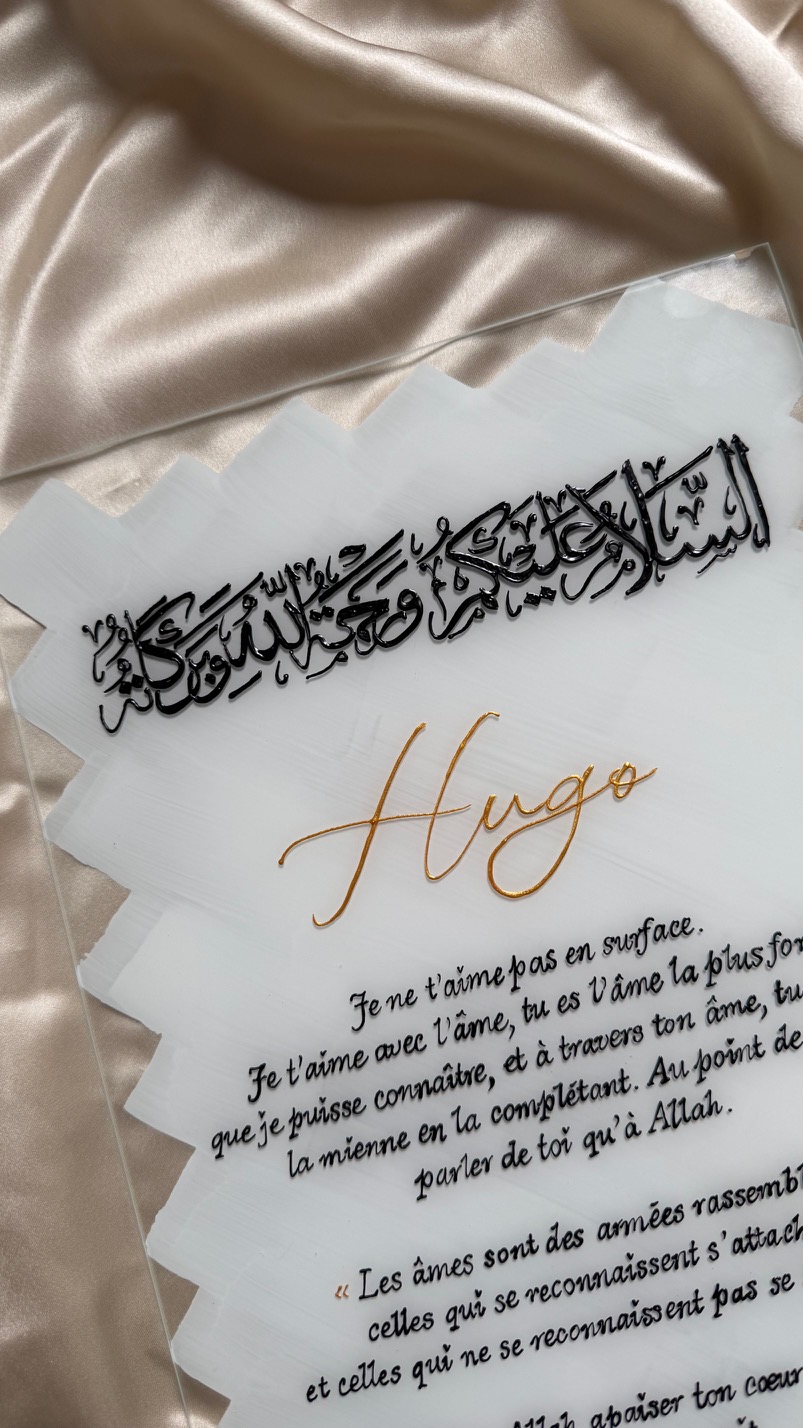 السلام عليكم ورحمة الله وبركاته
Hugo
Je ne t'aime pas en surface.
Je t'aime avec l'âme, tu es l'âme la plus
que je puisse connaître, et à travers ton âme, tu
la mienne en la complétant. Au point de
parler de toi qu'à Allah.
« Les âmes sont des armées
celles qui se reconnaissent
et celles qui ne se reconnaissent pas se
apaiser ton